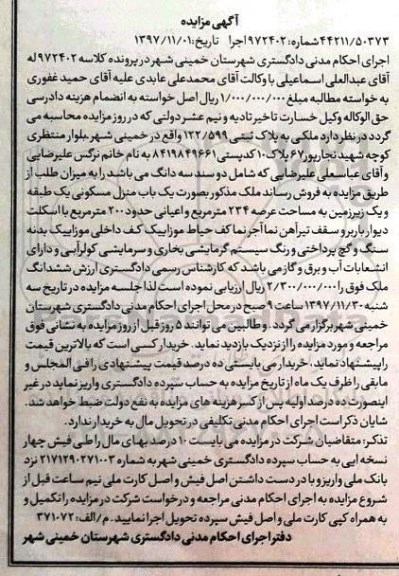 آگهی مزایده
۴۴۲۱۱/۵۰۳۷۳شماره: ۹۷۲۴۰۲اجرا تاریخ: ۱۳۹۷/۱۱/۰۱
اجرای احکام مدنی دادگستری شهرستان خمینی شهر در پرونده کلاسه ۹۷۲۴۰۲ له
آقای عبدالعلی اسماعیلی با وکالت آقای محمدعلی عابدی علیه آقای حمید غفوری
به خواسته مطالبه مبلغ ۱/۰۰۰/۰۰۰/۰۰۰ ریال اصل خواسته به انضمام هزینه دادرسی
حق الوکاله وکیل خسارت تاخیر تادیه و نیم عشر دولتی که در روز مزایده محاسبه می
گردد در نظر دارد ملکی به پلاک ثبتی ۱۲۲/۵۹۹ واقع در خمینی شهر بلوار منتظری
کوچه شهید نجارپور ۶۷ پلاک ۱۰ کدپستی ۸۴۱۹۸۴۹۶۶۱ به نام خانم نرگس علیرضایی
و آقای عباسعلی علیرضایی که شامل دو سند سه دانگ می باشد را به میزان طلب از
طریق مزایده به فروش رساند ملک مذکور بصورت یک باب منزل مسکونی یک طبقه
و یک زیرزمین به مساحت عرصه ۲۳۴ مترمربع و اعیانی حدود ۲۰۰ مترمربع با اسکلت
دیوار باربر و سقف تیرآهن نما آجرنما کف حیاط موزاییک کف داخلی موزاییک بدنه
سنگ و گچ پرداختی و رنگ سیستم گرمایشی بخاری و سرمایشی کولرآبی و دارای
انشعابات آب و برق و گاز می باشد که کارشناس رسمی دادگستری ارزش ششدانگ
ملک فوق را ۲/۳۰۰/۰۰۰/۰۰۰ ریال ارزیابی نموده است لذا جلسه مزایده در تاریخ سه
شنبه ۱۳۹۷/۱۱/۳۰ ساعت ۹ صبح در محل اجرای احکام مدنی دادگستری شهرستان
خمینی شهر برگزار می گردد. و طالبین می توانند ۵ روز قبل از روز مزایده به نشانی فوق
مراجعه و مورد مزایده را از نزدیک بازدید نماید. خریدار کسی است که بالاترین قیمت
را پیشنهاد نماید، خریدار می بایستی ده درصد قیمت پیشنهادی را فی المجلس و
مابقی را ظرف یک ماه از تاریخ مزایده به حساب سپرده دادگستری واریز نماید در غیر
اینصورت ده درصد اولیه پس از کسر هزینه های مزایده به نفع دولت ضبط خواهد شد.
شایان ذکر است اجرای احکام مدنی تکلیفی در تحویل مال به خریدار ندارد.
تذکر: متقاضیان شرکت در مزایده می بایست ۱۰ درصد بهای مال را طی فیش چهار
نسخه ایی به حساب سپرده دادگستری خمینی شهر به شماره ۲۱۷۱۲۹۰۲۷۱۰۰۳ نزد
بانک ملی واریز و با در دست داشتن اصل فیش و اصل کارت ملی نیم ساعت قبل از
شروع مزایده به اجرای احکام مدنی مراجعه و درخواست شرکت در مزایده را تکمیل و
به همراه کپی کارت ملی و اصل فیش سپرده تحویل اجرا نمایید. م/الف: ۳۷۱۰۷۲
دفتر اجرای احکام مدنی دادگستری شهرستان خمینی شهر